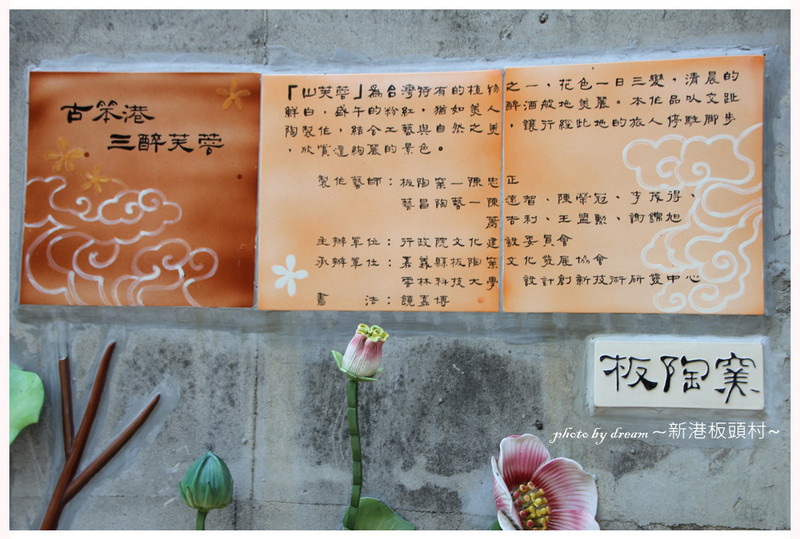 古笨港
三醉芙蓉
「山芙蓉」為台灣特有的植物之一，花色一日三變，清晨的
鮮白，盛午的粉紅，猶如美人醉酒般地美麗。本作品以交趾
陶製作，結合工藝與自然之美，讓行經此地的旅人停駐腳步
，欣賞這絢麗的景色。
製作藝師：板陶窯—陳忠正
藝昌陶藝—陳達智、陳榮冠、李茂得、
蕭杏利、王盟勳、謝錦旭
主辦單位：行政院文化建設委員會
承辦單位：嘉義縣板陶窯文化發展協會
雲林科技大學設計創新技術研發中心
書　法：饒嘉博
板陶窯
photo by dream ～新港板頭村～